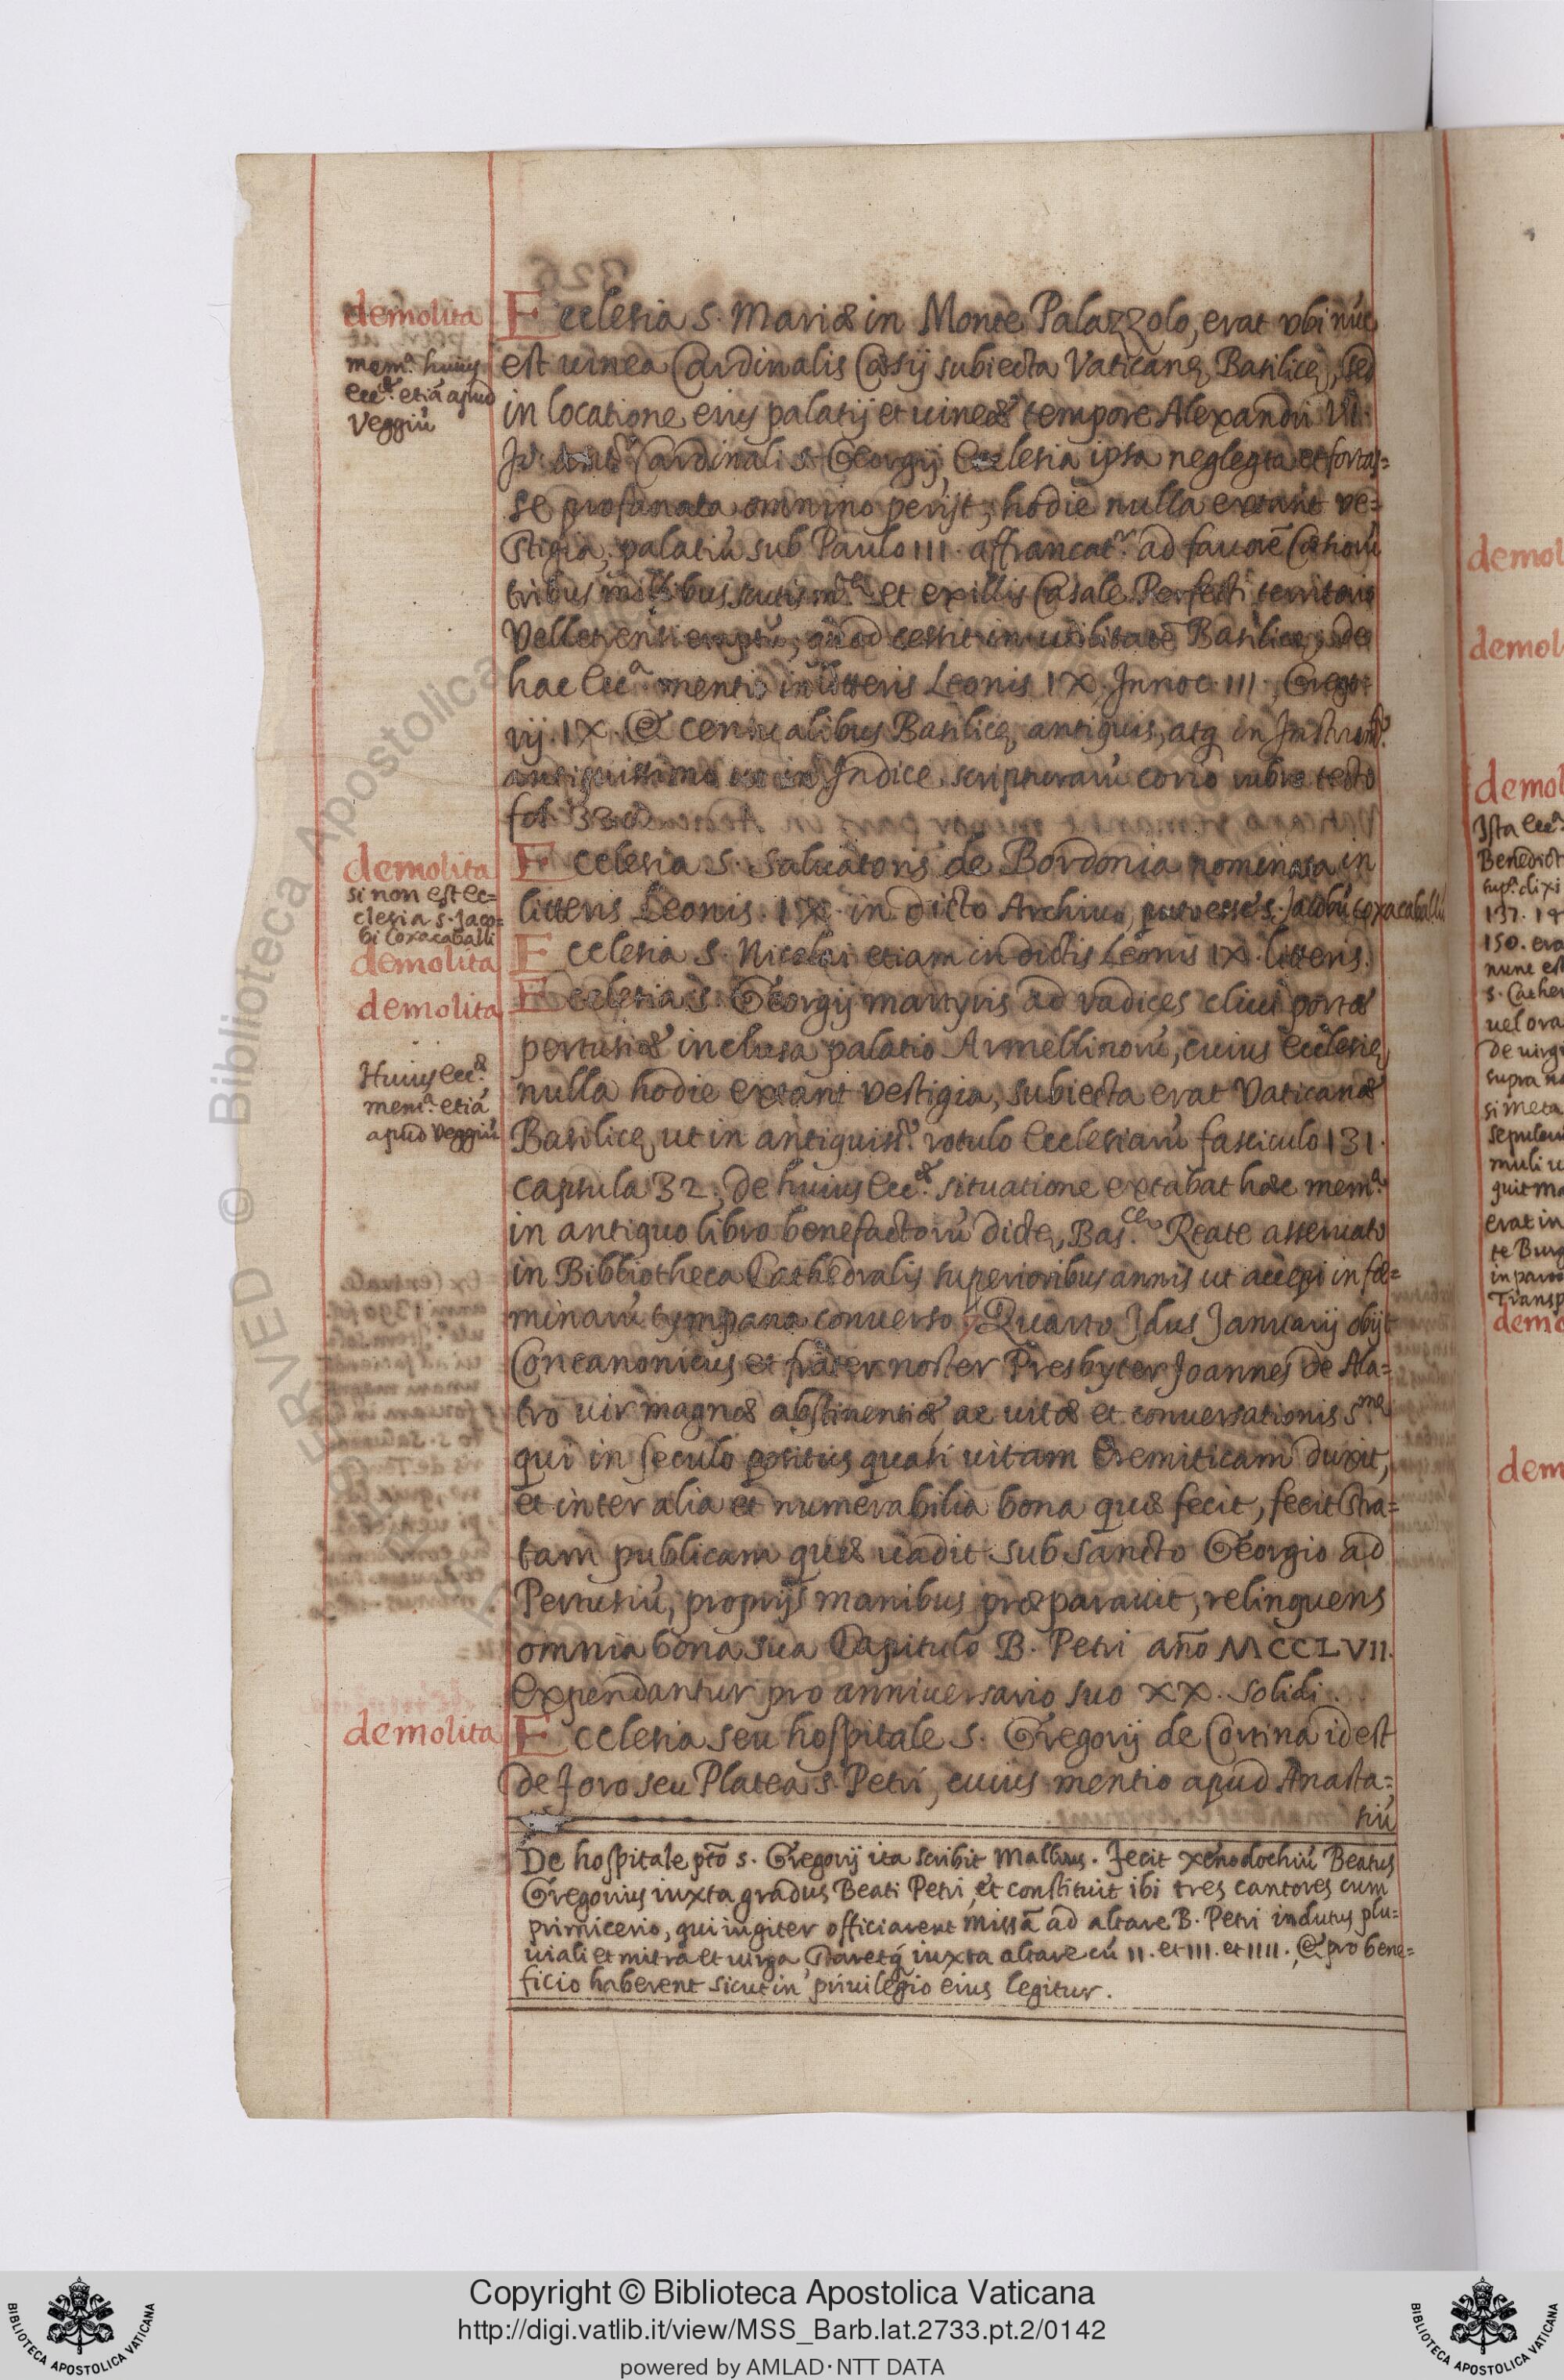 demolita
mem.ª huius
Ecc.æ etiā apud
Veggiū
Ecclesia S. Mariæ in Monte Palazzolo, erat ubi nūc
est uinea Cardinalis Cæsij subiecta Vaticanę Basilicę, sed
in locatione eius palatij et uineæ tempore Alexandri VI.
Cardinali S. Georgij, Ecclesia ipsa neglecta et fortas=
se profanata omnino perijt, hodie nulla extant ve=
stigia, palatiū sub Paulo III. affrancat.r ad fauorē Cæsiorū
tribus millibus scutis m.tæ et ex illis Casale Perfecti territorio
Velleten: emptū, quod cessit in utilitatē Basilicę, de
hac Ecc.ª mentio in litteris Leonis IX. Innoc. III., Grego=
rij. IX. & censualibus Basilicę antiquis, atq in Instrum.to
antiquissimo ut in Indice scripturarū corio rubro tecto
fol. 320
demolita
si non est ec=
clesia S. Jaco=
bi Coxacaballi
Ecclesia S. Saluatoris de Bordonia nominata in
litteris Leonis. IX. in dicto Archiuo, puto esse S. Jacobū Coxacaballi
demolita
Ecclesia S. Nicolai etiam in dictis Leonis IX. litteris.
demolita
Ecclesia S. Georgij martyris ad radices cliui portæ
pertusiæ inclusa palatio Armellinorū, cuius Ecclesię
nulla hodie extant vestigia, subiecta erat Vaticanæ
Huius Ecc.æ
mem.ª etiā
apud Veggiū
Basilicę, ut in antiquiss.o rotulo Ecclesiarū fasciculo 131.
capsula 32. De huius Ecc.æ situatione extabat hæc mem.ª
in antiquo libro benefactorū dictę, Bas.cę Reate asseruato
in Bibliotheca Cathedralis superioribus annis ut accepi in fœ=
minarū tympana conuerso, Quarto Idus Januarij obijt
Concanonicus et frater noster Presbyter Joannes de Ala=
tro uir magnæ abstinentiæ, ac uitæ et conuersationis s.mę
qui in seculo positus quasi uitam Eremiticam duxit,
et inter alia et numerabilia bona quæ fecit, fecit stra=
tam publicam quæ uadit sub sancto Georgio ad
Pertusiū, proprijs manibus præparauit, relinquens
omnia bona sua Capitulo B. Petri año MCCLVII.
Expendantur pro anniuersario suo XX. solidi.
demolita
Ecclesia seu hospitale S. Gregorij de Cortina id est
de foro seu Platea S. Petri, cuius mentio apud Anasta=
siū
De hospitale pto S. Gregorij ita scribit Mallius. Fecit xenodochiū Beatus
Gregorius iuxta gradus Beati Petri, et constituit ibi tres cantores cum
primicerio, qui iugiter officiarent missā ad altare B. Petri indutus plu=
uiali et mitra et uirga, staretq iuxta altare cū II. et III. et IIII., & pro bene=
ficio haberent sicut in priuilegio eius legitur.
demol
demol
demol
Ista Ecc.
Benedict
sup. dixi
150. era
nunc est
S. Cather
uel ora
de uirg
supra n
si meta
sepulcu
muli u
guit m
erat in
te Burg
in paro
Transp
demo
dem
Copyright © Biblioteca Apostolica Vaticana
http://digi.vatlib.it/view/MSS_Barb.lat.2733.pt.2/0142
powered by AMLAD·NTT DATA
BIBLIOTECA APOSTOLICA VATICANA
BIBLIOTECA APOSTOLICA VATICANA